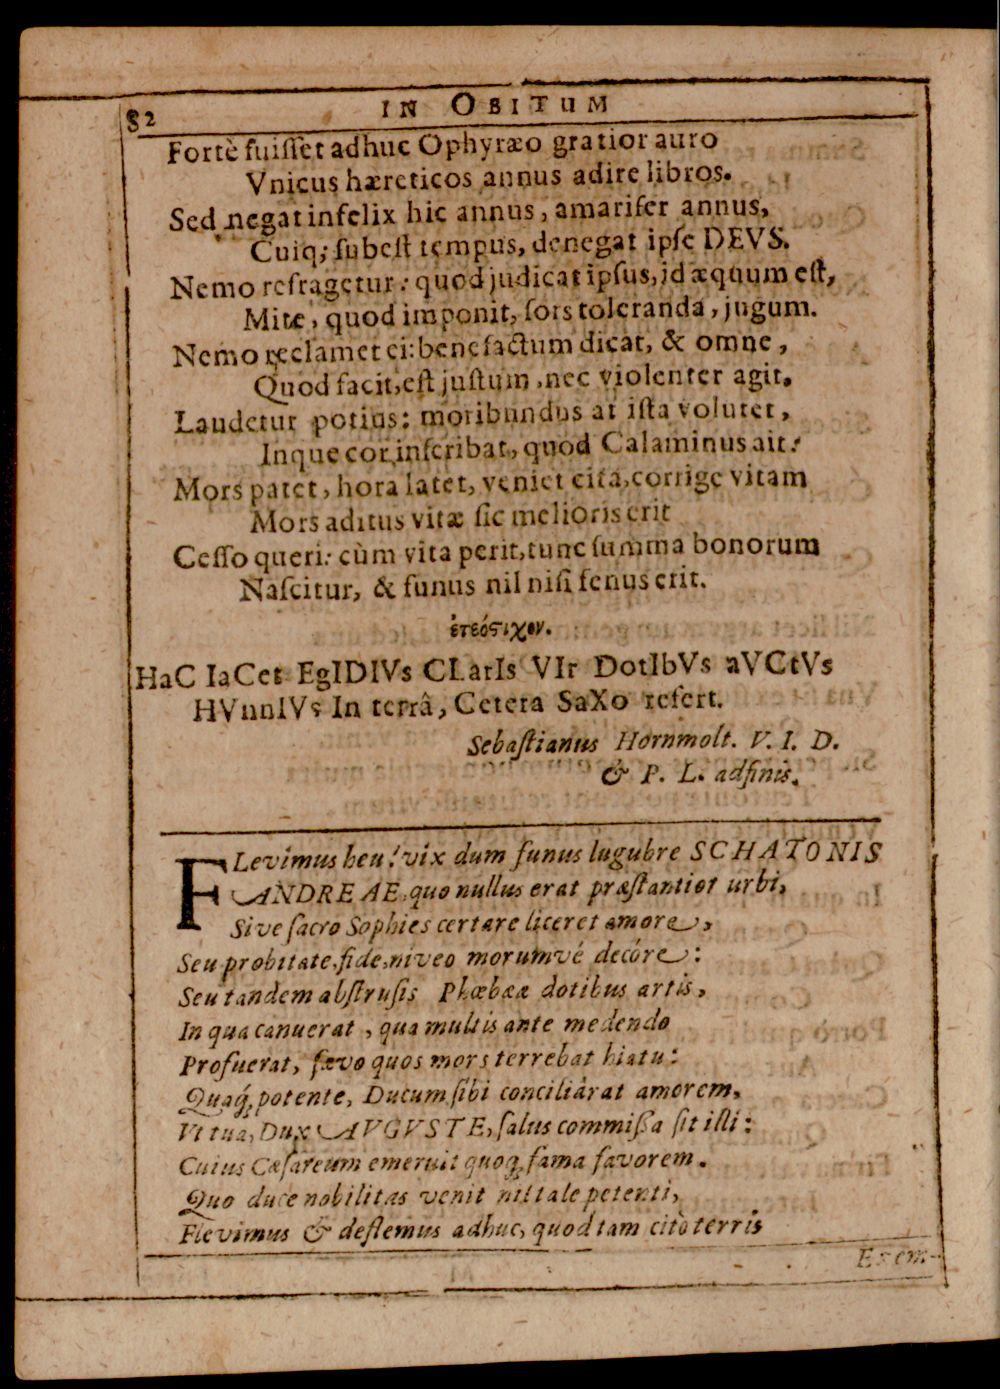 82 IN OBITUM
Fortè fuiſſet adhuc Ophyræo gratior auro
Vnicus hæreticos annus adire libros.
Sed negat infelix hic annus, amarifer annus,
Cuiq; ſubeſt tempus, denegat ipſe DEVS.
Nemo refragetur: quod judicat ipſus, id æquum eſt,
Mite, quod imponit, ſors toleranda, jugum.
Nemo reclamet ei: benefactum dicat, & omne,
Quod facit, eſt juſtum, nec violenter agit.
Laudetur potius: moribundus at iſta volutet,
Inque cor inſcribat, quod Calaminus ait:
Mors patet, hora latet, veniet cita, corrige vitam
Mors aditus vitæ ſic melioris erit
Ceſſo queri: cùm vita perit, tunc ſumma bonorum
Naſcitur, & funus nil niſi fenus erit.
ἐτεόστιχον.
HaC IaCet EgIDIVs CLarIs VIr DotIbVs aVCtVs
HVnnIVs In terrâ, Cetera SaXo refert.
Sebaſtianus Hornmolt. V. I. D.
& P. L. adfinis.
FLevimus heu! vix dum funus lugubre SCHATONIS
ANDREAE, quo nullus erat præſtantior urbi,
Sive ſacro Sophies certare liceret amore,
Seu probitate, fide, niveo morumvé decóre:
Seu tandem abſtruſis Phœbææ dotibus artis,
In qua canuerat, qua multis ante medendo
Profuerat, ſævo quos mors terrebat hiatu:
Quaq; potente, Ducum ſibi conciliârat amorem,
Vt tua, Dux AVGVSTE, ſalus commiſſa ſit illi:
Cuius Cæſareum emeruit quoq; fama favorem.
Quo duce nobilitas venit nil tale petenti,
Flevimus & deflemus adhuc, quod tam citò terris
Exem-